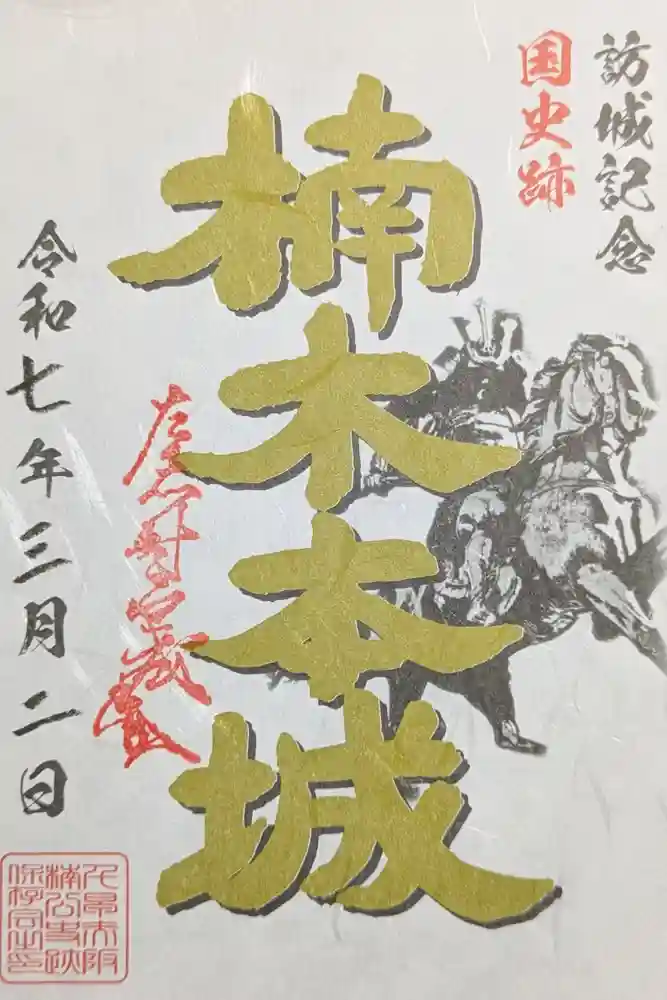 訪城記念
国史跡
楠木本城
令和七年三月二日
千早赤阪
楠公史跡
保存会之印